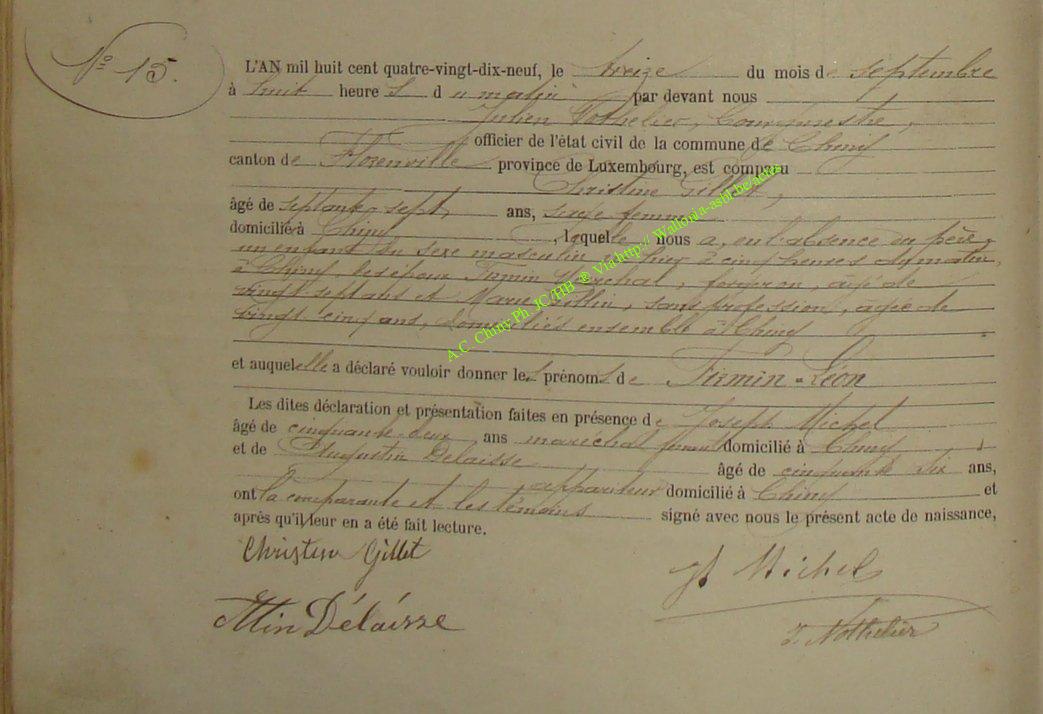 N° 15.
L'AN mil huit cent quatre-vingt-dix-neuf, le treize du mois de septembre
à huit heures du matin par devant nous
Julien Nothelier, bourgmestre,
officier de l'état civil de la commune de Chiny
canton de Florenville province de Luxembourg, est comparu
Christine Gillet,
âgé de septante-sept ans, sage femme
domicilié à Chiny, laquelle nous a, en l'absence du père,
un enfant du sexe masculin, à cinq heures du matin,
à Chiny, des époux Firmin Maréchal, forgeron, âgé de
vingt sept ans et Marie, sans profession, âgée de
vingt cinq ans, domiciliés ensemble à Chiny
et auquel elle a déclaré vouloir donner les prénoms de Firmin-Léon
Les dites déclaration et présentation faites en présence de Joseph Michel
âgé de cinquante deux ans maréchal ferrant domicilié à Chiny
et de Augustin Delaisse âgé de cinquante six ans,
appariteur domicilié à Chiny et
ont la comparante et les témoins signé avec nous le présent acte de naissance,
après qu'il leur en a été fait lecture.
Christine Gillet
Jh Michel
Attin Délaisse
J. Nothelier
A.C. Chiny Ph. JC/HB ® Via http://Wallonia-asbl.be/actes